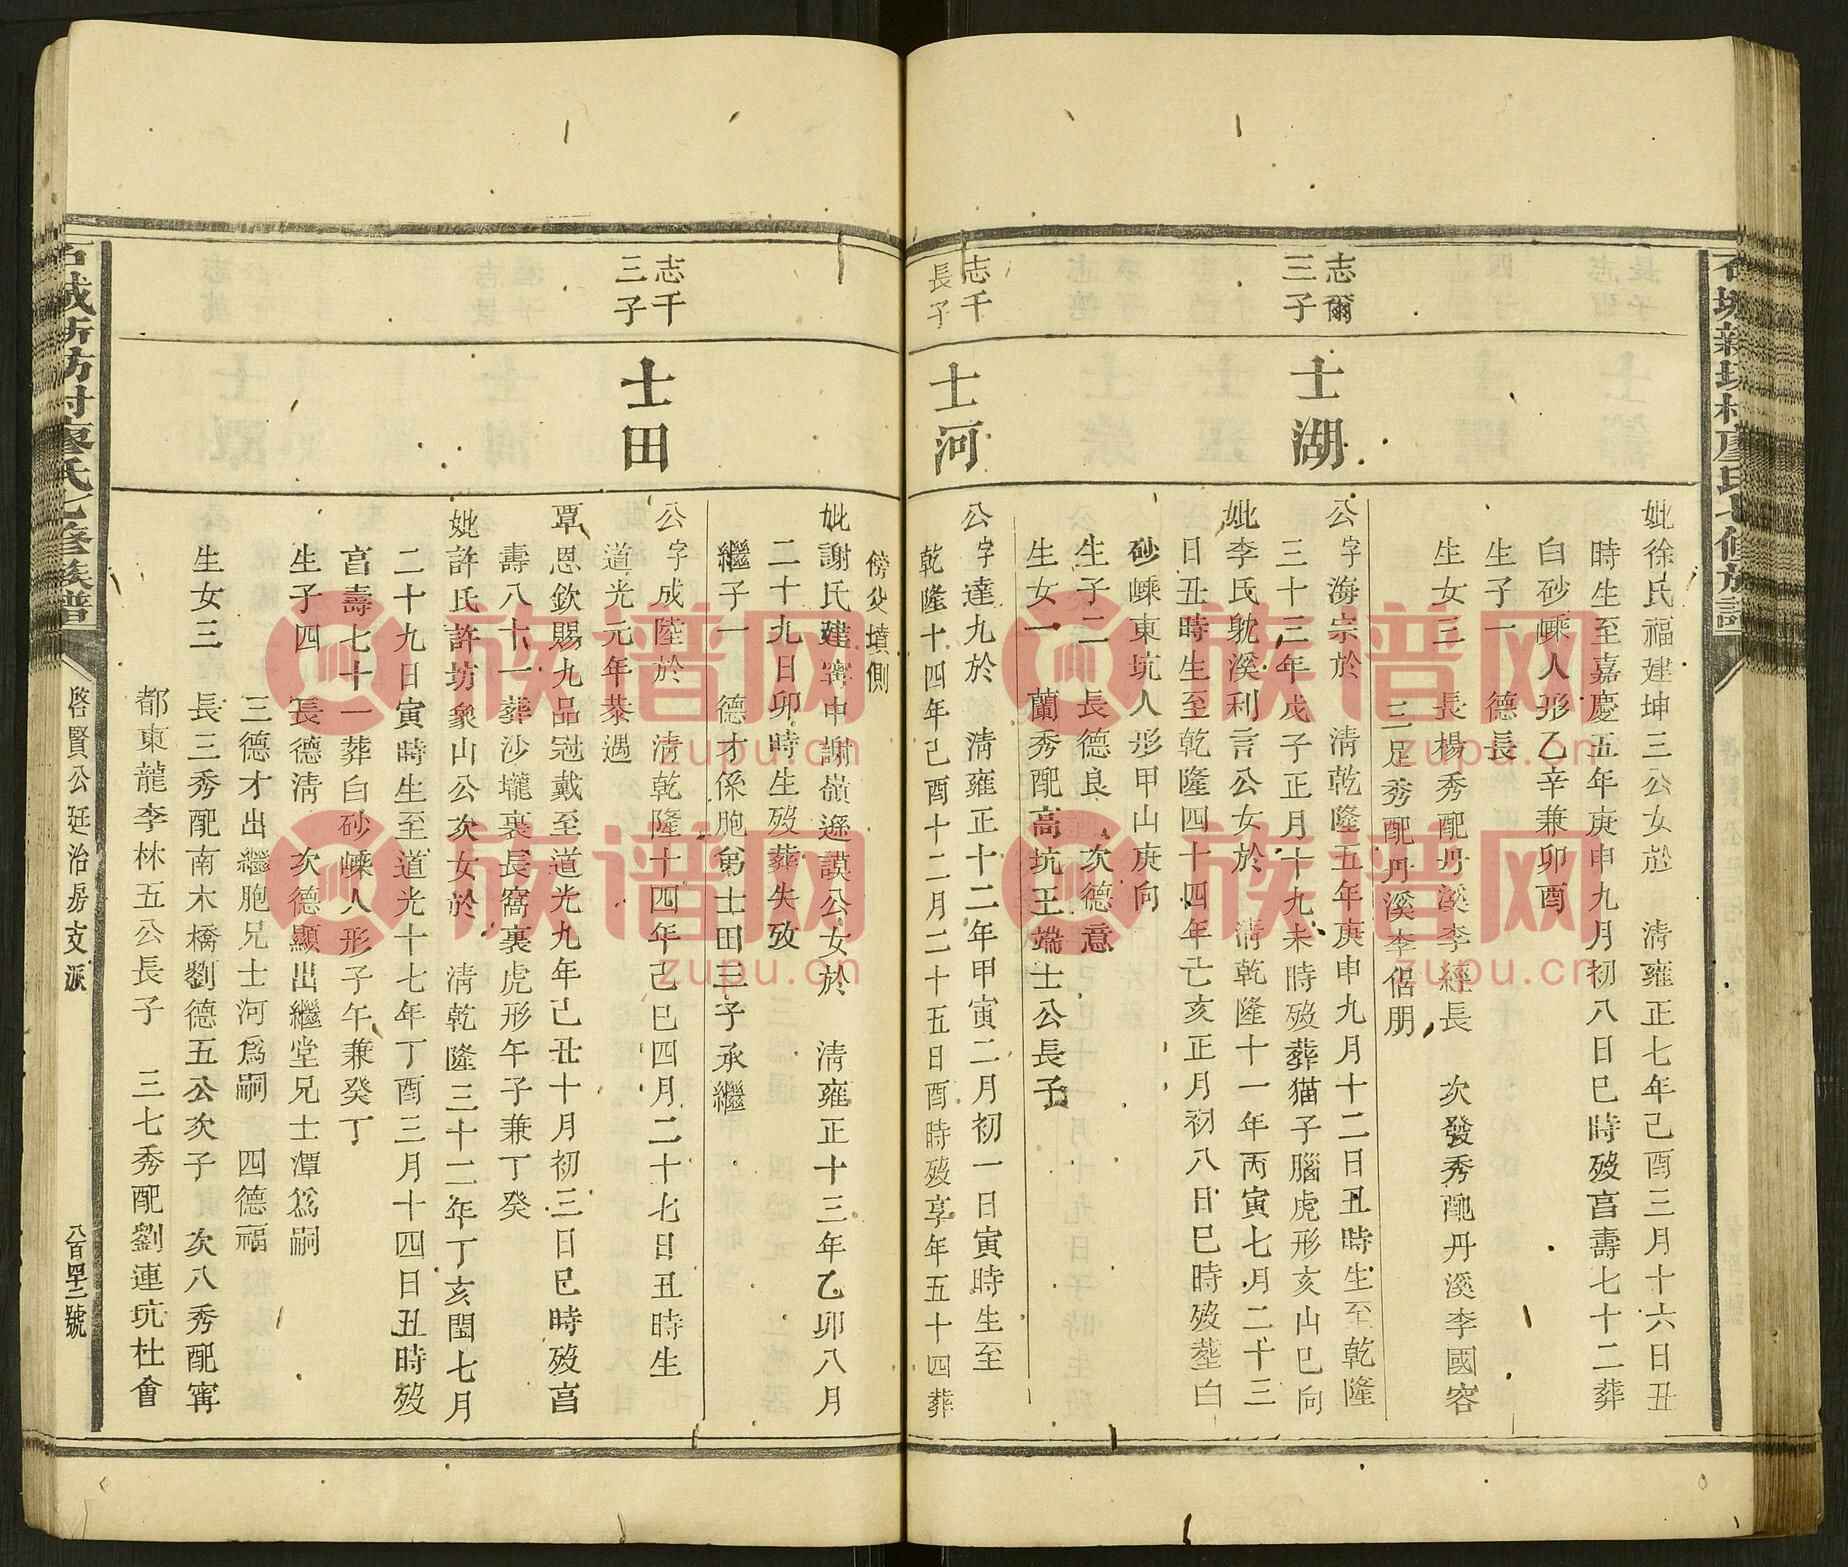 石城新坊村廖氏七修族譜
妣徐氏福建坤三公女於 清雍正七年己酉三月十六日丑
時生至嘉慶五年庚申九月初八日巳時歿享壽七十二葬
白砂嵊人形乙辛兼卯酉
生子一 德長
生女三 長楊秀配丹溪李經長 次發秀配丹溪李國容
三足秀配丹溪李佀朋
志爾
三子
士湖
公字海宗於 清乾隆五年庚申九月十二日丑時生至乾隆
三十三年戊子正月十九未時歿葬猫子腦虎形亥山巳向
妣李氏躭溪利言公女於 清乾隆十一年丙寅七月二十三
日丑時生至乾隆四十四年亡亥正月初八日巳時歿塟白
砂嵊東坑人形甲山庚向
生子二 長德良 次德意
生女一 蘭秀配高坑王端士公長子
志千
長子
士河
公字達九於 清雍正十二年甲寅二月初一日寅時生至
乾隆十四年己酉十二月二十五日酉時歿享年五十四葬
傍父墳側
妣謝氏建寧中謝嶺遜謨公女於 清雍正十三年乙卯八月
二十九日卯時生歿葬失攷
繼子一 德才係胞弟士田三子承繼
志千
三子
士田
公字成陸於 清乾隆十四年己巳四月二十七日丑時生
道光元年恭遇
覃恩欽賜九品冠戴至道光九年己丑十月初三日巳時歿享
壽八十一葬沙壠裏長窩裏虎形午子兼丁癸
妣許氏許坊象山公次女於 清乾隆三十二年丁亥閏七月
二十九日寅時生至道光十七年丁酉三月十四日丑時歿
享壽七十一葬白砂嵊人形子午兼癸丁
生子四 長德淸 次德顯出繼堂兄士潭爲嗣
三德才出繼胞兄士河爲嗣 四德福
生女三 長三秀配南木橋劉德五公次子 次八秀配寧
都東龍李林五公長子 三七秀配劉連坑杜會
石城新坊村廖氏七修族譜
啓賢公廷治房支派
八百四十二號
族谱网
zupu.cn
族谱网
zupu.cn
族谱网
zupu.cn
族谱网
zupu.cn